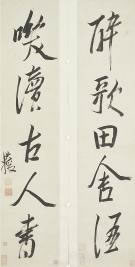 醉歌田舍酒
笑讀古人書